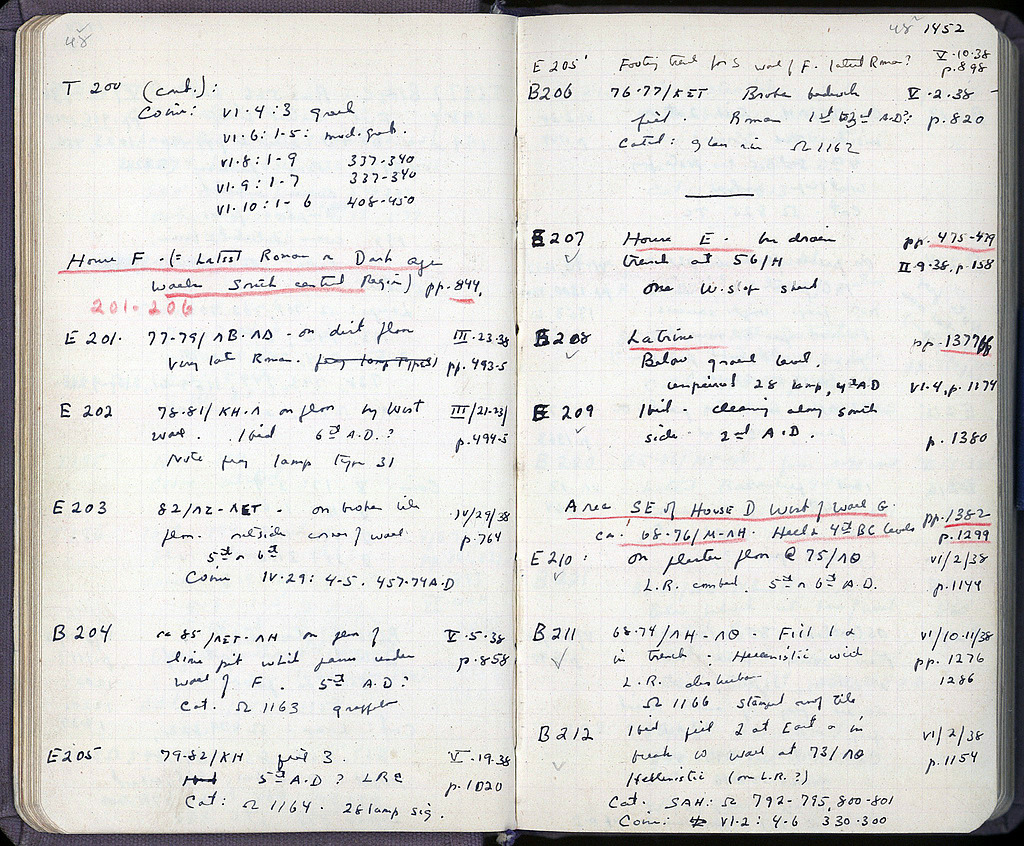 48
T 200 (cont.):
Coins: VI·4:3 greek
VI·6:1-5:
VI·8:1-9 337-340
VI·9:1-7 337-340
VI·10:1-6 408-450
House F - (= Latest Roman or Dark age
walls South central Region) pp. 844,
201-206
E 201. 77-79/ΛB-ΛΔ - on dirt floor III·23·38
Very late Roman. pp. 493-5
E 202 78-81/KH-Λ on floor by West III/21-23/
wall. Ibid 6th A.D.? p.494-5
Note frag lamp Type 31
E 203 82/ΛZ-ΛET - on broken tile IV/29/38
floor. outside corner of wall p.764
5th or 6th
Coin IV·29: 4-5. 457-74 A.D
B 204 ca 85/ΛET-ΛH on floor of V·5·38
lime pit which passes under p.858
wall of F. 5th A.D?
Cat. Ω 1163
E 205 79-82/KH fill 3. V·19·38
5th A.D? LRC p.1020
Cat: Ω 1164. 28 lamp sig.
48 1452
E 205' Footing trench for S wall of F. latest Roman? V·10·38
p.898
B206 76-77/ΛET Broken bedrock V·2·38
fill Roman 1st 3rd A.D? p.820
Cat'd: glass rim Ω 1162
E 207 House E - in drain pp. 475-479
trench at 56/H II·9·38, p.158
one W. slop sherd
B 208 Latrine pp. 1377ff
Below ground level.
unpierced 28 lamp, 4th AD VI·4, p.1174
E 209 Ibid. - cleaning along south
side - 2nd A.D. p.1380
Area SE of House D West of wall G. pp.1382-
ca. 68-76/M-ΛH. Hell & 4th BC levels p.1299
E210: on plaster floor @ 75/ΛΘ VI/2/38
L.R. combed 5th or 6th A.D. p.1144
B211 68-74/ΛH-ΛΘ - Fill 1 & VI/10-11/38
in trench: Hellenistic with pp. 1276
L.R. disturbance 1286
Ω 1166 stamped roof tile
B212 Ibid fill 2 at East & in VI/2/38
break in wall at 73/ΛΘ p.1154
Hellenistic (on L.R.?)
Cat. SAH: Ω 792-795, 800-801
Coins: VI·2: 4-6 330-300